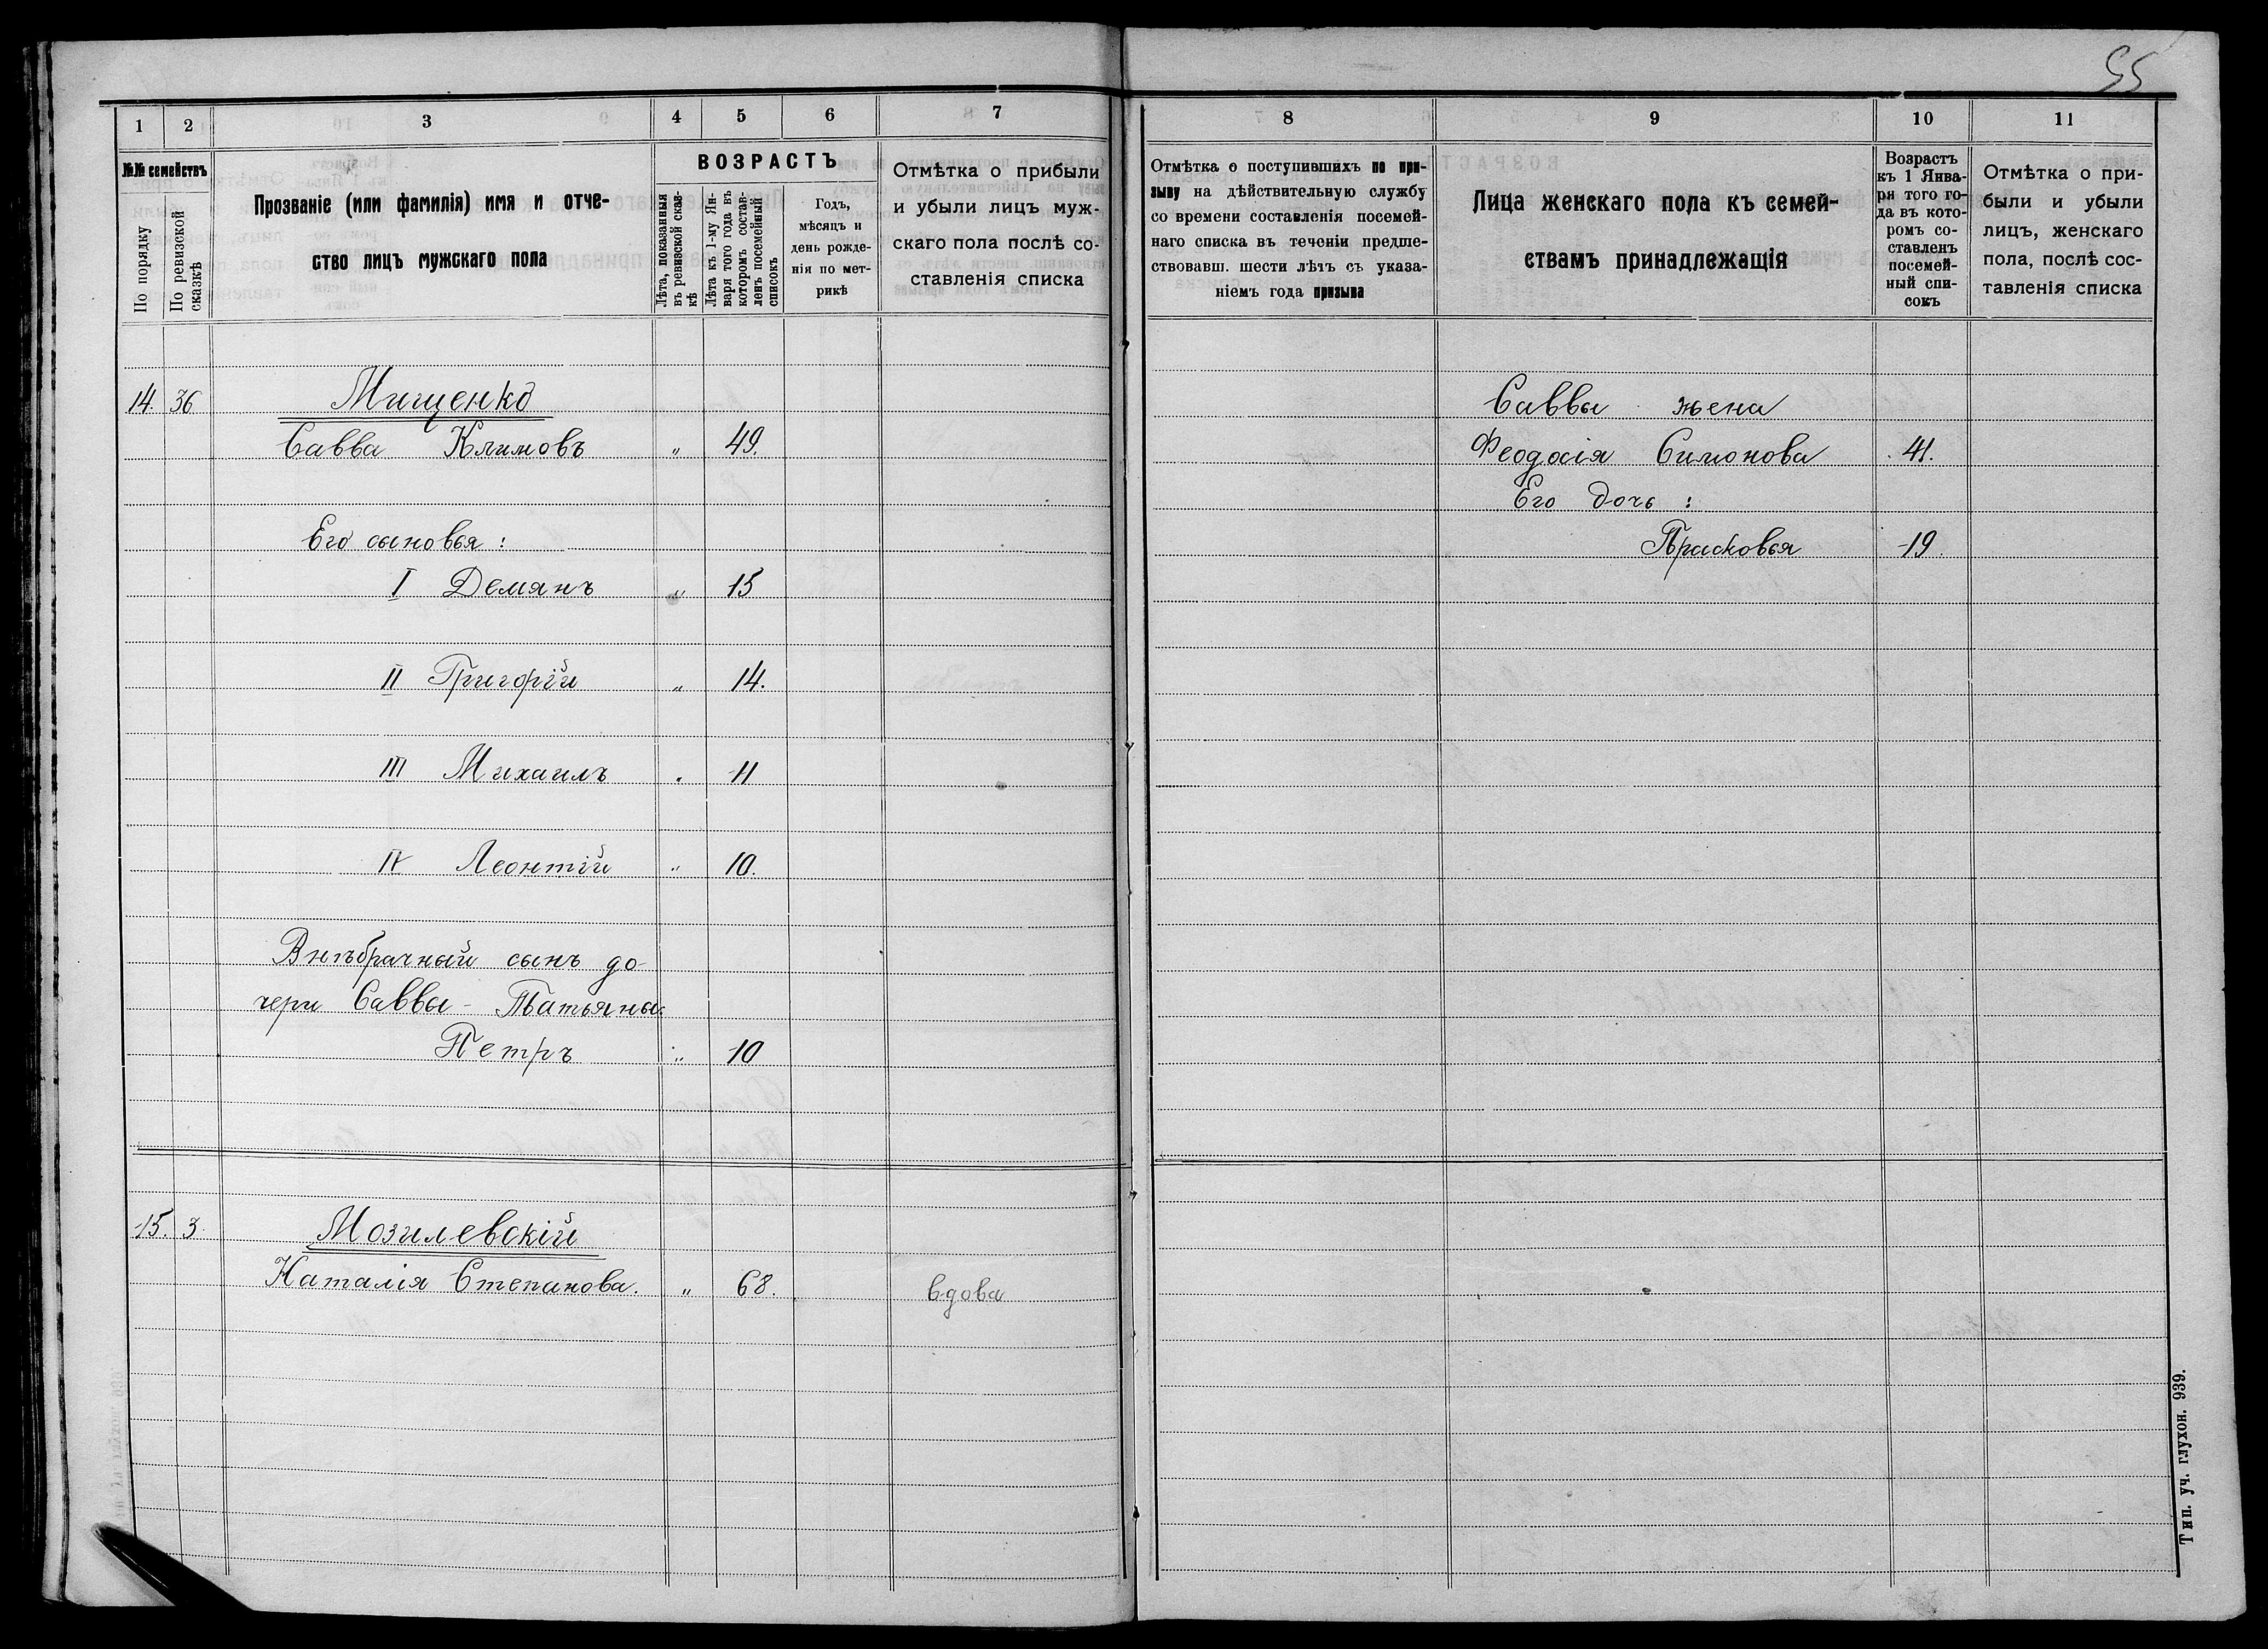 55
1 2 3 4 5 6 7
№№ семействъ
По порядку
По ревизской сказкѣ
Прозваніе (или фамилія) имя и отче-
ство лицъ мужскаго пола
ВОЗРАСТЪ
Лѣта, показанныя
въ ревизской сказ-
кѣ
Лѣта къ 1-му Ян-
варя того года въ
которомъ состав-
ленъ посемейный
списокъ
Годъ,
мѣсяцъ и
день рожде-
нія по мет-
рикѣ
Отмѣтка о прибыли
и убыли лицъ муж-
скаго пола послѣ со-
ставленія списка
14. 36 Мищенко
Савва Климовъ " 49.
Его сыновья :
I Демянъ " 15
II Григорій " 14.
III Михаилъ " 11
IV Леонтій " 10.
Внѣбрачный сынъ до-
чери Саввы - Татьяны:
Петръ " 10
15. 3. Мозилевскій
Наталія Степанова. " 68. вдова
8 9 10 11
Отмѣтка о поступившихъ по при-
зыву на дѣйствительную службу
со времени составленія посемей-
наго списка въ теченіи предше-
ствовавш. шести лѣтъ съ указа-
ніемъ года призыва
Лица женскаго пола къ семей-
ствамъ принадлежащія
Возрастъ
къ 1 Янва-
ря того го-
да въ кото-
ромъ со-
ставленъ
посемей-
ный спи-
сокъ
Отмѣтка о при-
были и убыли
лицъ, женскаго
пола, послѣ сос-
тавленія списка
Саввы жена
Феодосія Симонова 41.
Его дочь :
Прасковья 19.
Тип. уч. глухон. 939.